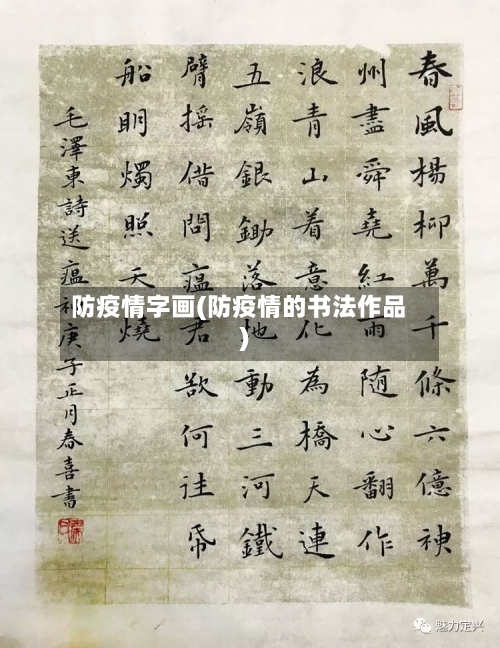 春風楊柳萬千條六億神
州盡舜堯紅雨随心翻作
浪青山着意化為橋天連
五嶺銀鋤落地動三河鐵
臂摇借問瘟君欲何往帋
船明燭照天燒
毛澤東詩送瘟神庚子正月春喜書
防疫情字画(防疫情的书法作品
)
魅力定兴